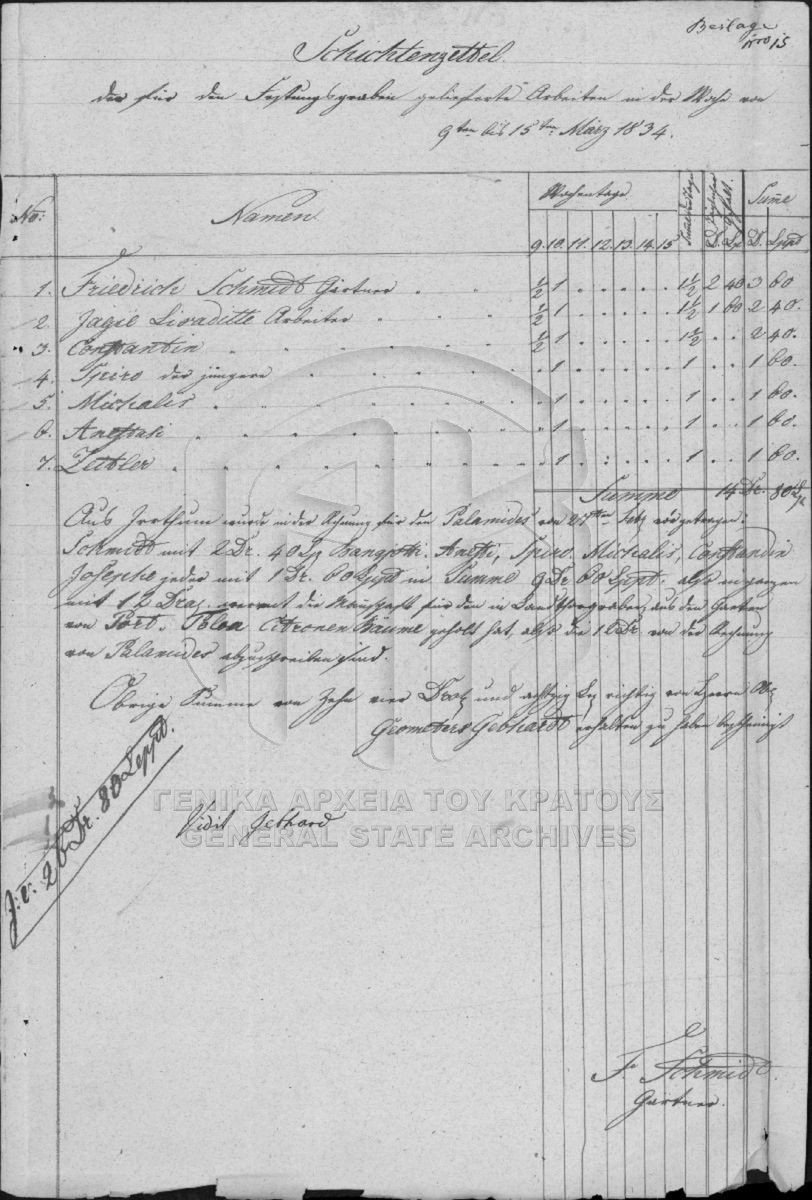 Beilage
Nro 15
Schichtenzettel
der für den Festungsgraben gelieferte Arbeiten in der Woche von
9ten bis 15ten März 1834.
No: Namen Wochentage Summe
9. 10. 11. 12. 13. 14. 15 D. Lp D. Lppt
1. Friedrich Schmidt Gärtner . . ½ 1 . . . . . 1½ 2 40 3 60
2. Jagie Livaditte Arbeiter . . ½ 1 . . . . . 1½ 1 60 2 40.
3. Constantin ½ 1 . . . . . 1½ . . 2 40.
4. Spiro der jüngere . 1 . . . . . 1 . . 1 60.
5. Michalis . 1 . . . . . 1 . . 1 60.
6. Anestasi . 1 . . . . . 1 . . 1 60.
7. Zettler . 1 . . . . . 1 . . 1 60.
Summe 14 Dr. 80 Lp
Aus Irrthum wurde in der Rechnung für den Palamides von 27ten vorgetragen:
Schmidt mit 2 Dr. 40 Lp Anesti, Spiro, Michalis, Constandin
Josephe jeder mit 1 Dr. 60 Lppt in Summe 9 Dr 60 Lppt. also in ganzen
mit 12 Dra, womit die Mannschaft für den in Landthorgraben aus dem Garten
von Port. Poloa Citronen Bäume geholt hat, also die 12 Dr. von der Rechnung
von Palamides abzuschreiben sind.
Obige Summe von Zehn vier Dra und achtzig Lp richtig von Herrn
Geometers Gebhardt erhalten zu haben bescheinigt
J: e: 26 Dr. 80 Leppt.
ΓΕΝΙΚΑ ΑΡΧΕΙΑ ΤΟΥ ΚΡΑΤΟΥΣ
Vidit Gebhard
GENERAL STATE ARCHIVES
F. Schmidt
Gärtner.